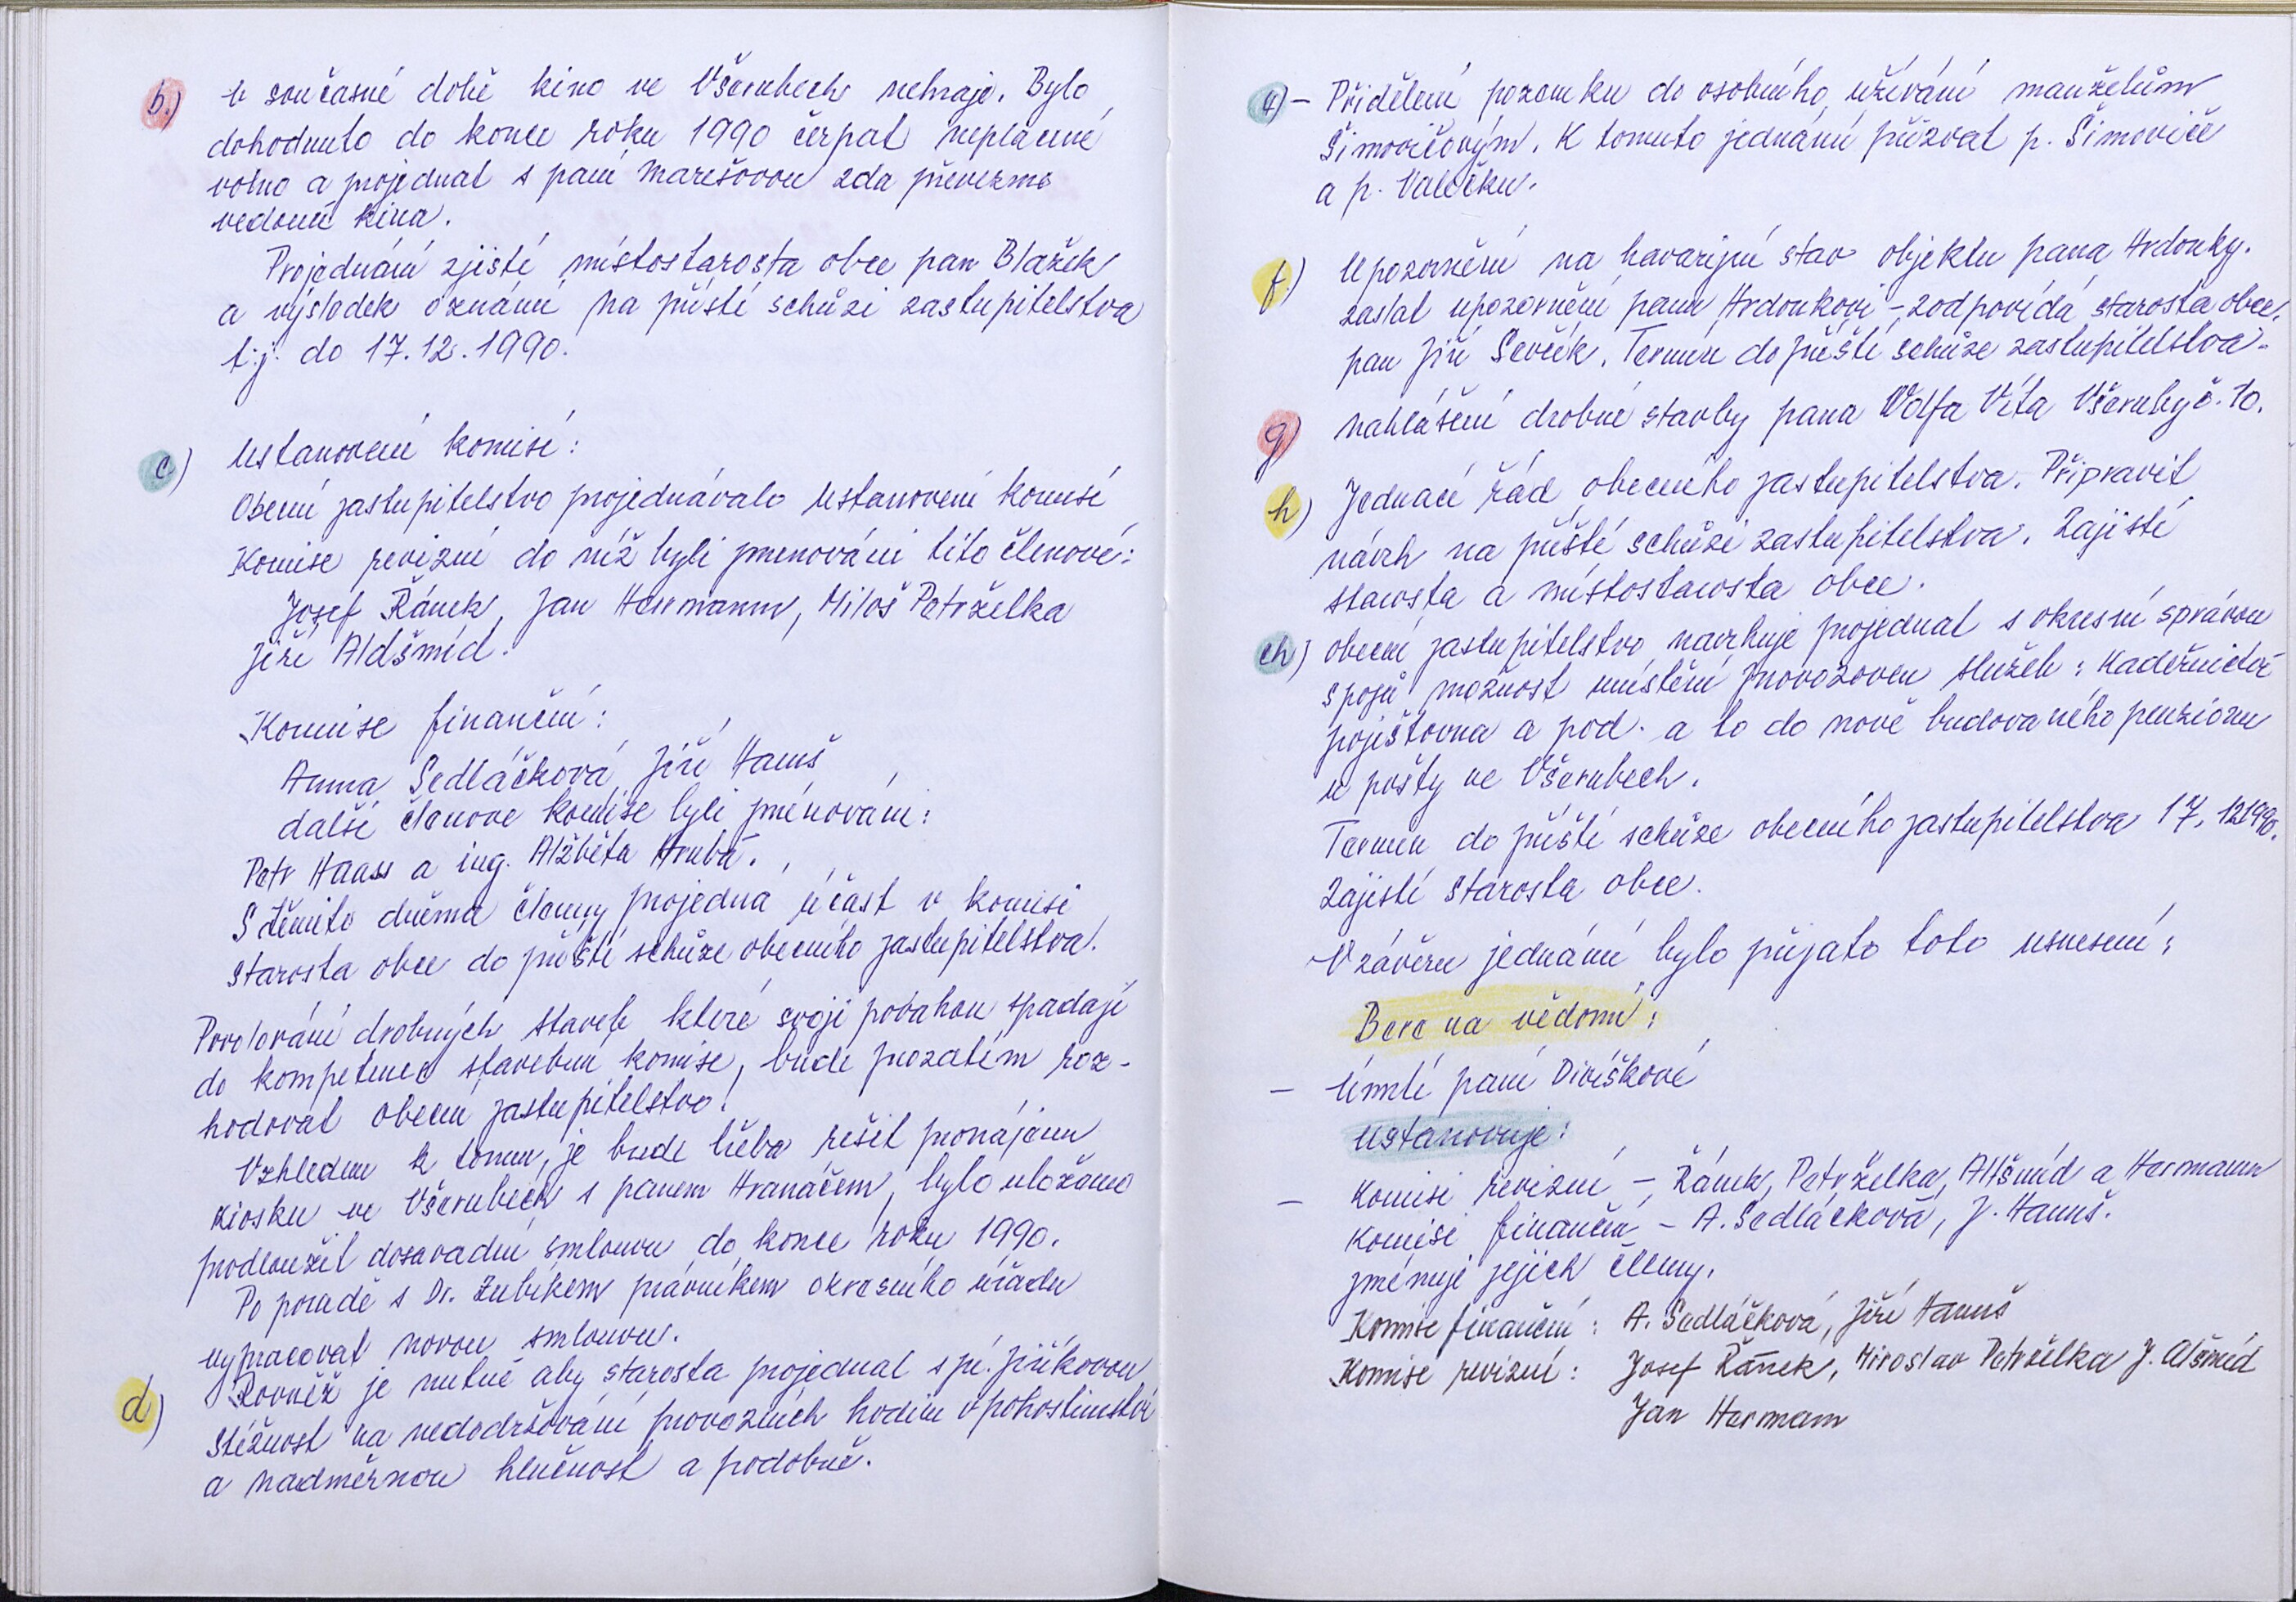 b.) v současné době kino ve Všerubech nehraje. Bylo
dohodnuto do konce roku 1990 čerpat neplacené
volno a projednat s paní Marešovou zda převezme
vedení kina.
Projednání zjistí místostarosta obce pan Blažek
a výsledek oznámí na příští schůzi zastupitelstva
t.j. do 17.12.1990.
c) Ustanovení komisí:
Obecní zastupitelstvo projednávalo ustanovení komisí
Komise revizní do níž byli jmenováni tito členové:
Josef Řánek, Jan Herrmann, Miloš Petrželka
Jiří Aldšmíd.
Komise finanční:
Anna Sedláčková, Jiří Hanuš
další členové komise byli jmenováni:
Petr Haass a ing. Alžběta Hrubá.
S těmito dvěma členy projedná účast v komisi
starosta obce do příští schůze obecního zastupitelstva.
Povolování drobných staveb které svojí povahou spadají
do kompetence stavební komise, bude prozatím roz-
hodovat obecní zastupitelstvo.
Vzhledem k tomu, je bude třeba řešit pronájem
kiosku ve Všerubech s panem Hranáčem, bylo uloženo
prodloužit dosavadní smlouvu do konce roku 1990.
Po poradě s Dr. Zubíkem právníkem okresního úřadu
vypracovat novou smlouvu.
d) Rovněž je nutné aby starosta projednal s pí. Jiříkovou
stížnost na nedodržování provozních hodin v pohostinství
a nadměrnou hlučnost a podobně.
e) - Přidělení pozemku do osobního užívání manželům
Šimovičovým. K tomuto jednání přizvat p. Šimoviče
a p. Valečku.
f) Upozornění na havarijní stav objektu pana Hrdonky.
zaslat upozornění panu Hrdonkovi - zodpovídá starosta obce,
pan Jiří Ševčík. Termín do příští schůze zastupitelstva.
g) nahlášení drobné stavby pana Wolfa Víta Všeruby č. 10.
h) Jednací řád obecního zastupitelstva. Připravit
návrh na příští schůzi zastupitelstva. Zajistí
starosta a místostarosta obce.
ch) obecní zastupitelstvo navrhuje projednat s okresní správou
spojů možnost umístění provozoven služeb: kadeřnictví
pojišťovna a pod. a to do nově budovaného penzionu
u pošty ve Všerubech.
Termín do příští schůze obecního zastupitelstva 17. 12 1990.
Zajistí starosta obce.
V závěru jednání bylo přijato toto usnesení:
Bere na vědomí:
- úmrtí paní Divíškové
Ustanovuje:
- Komisi revizní - Řánek, Petrželka, Altšmíd a Hermann
komisi finanční - A. Sedláčková, J. Hanuš.
jmenuje jejich členy.
Komise finanční: A. Sedláčková, Jiří Hanuš
Komise revizní: Josef Řánek, Miroslav Petrželka J. Alšmíd
Jan Hermam